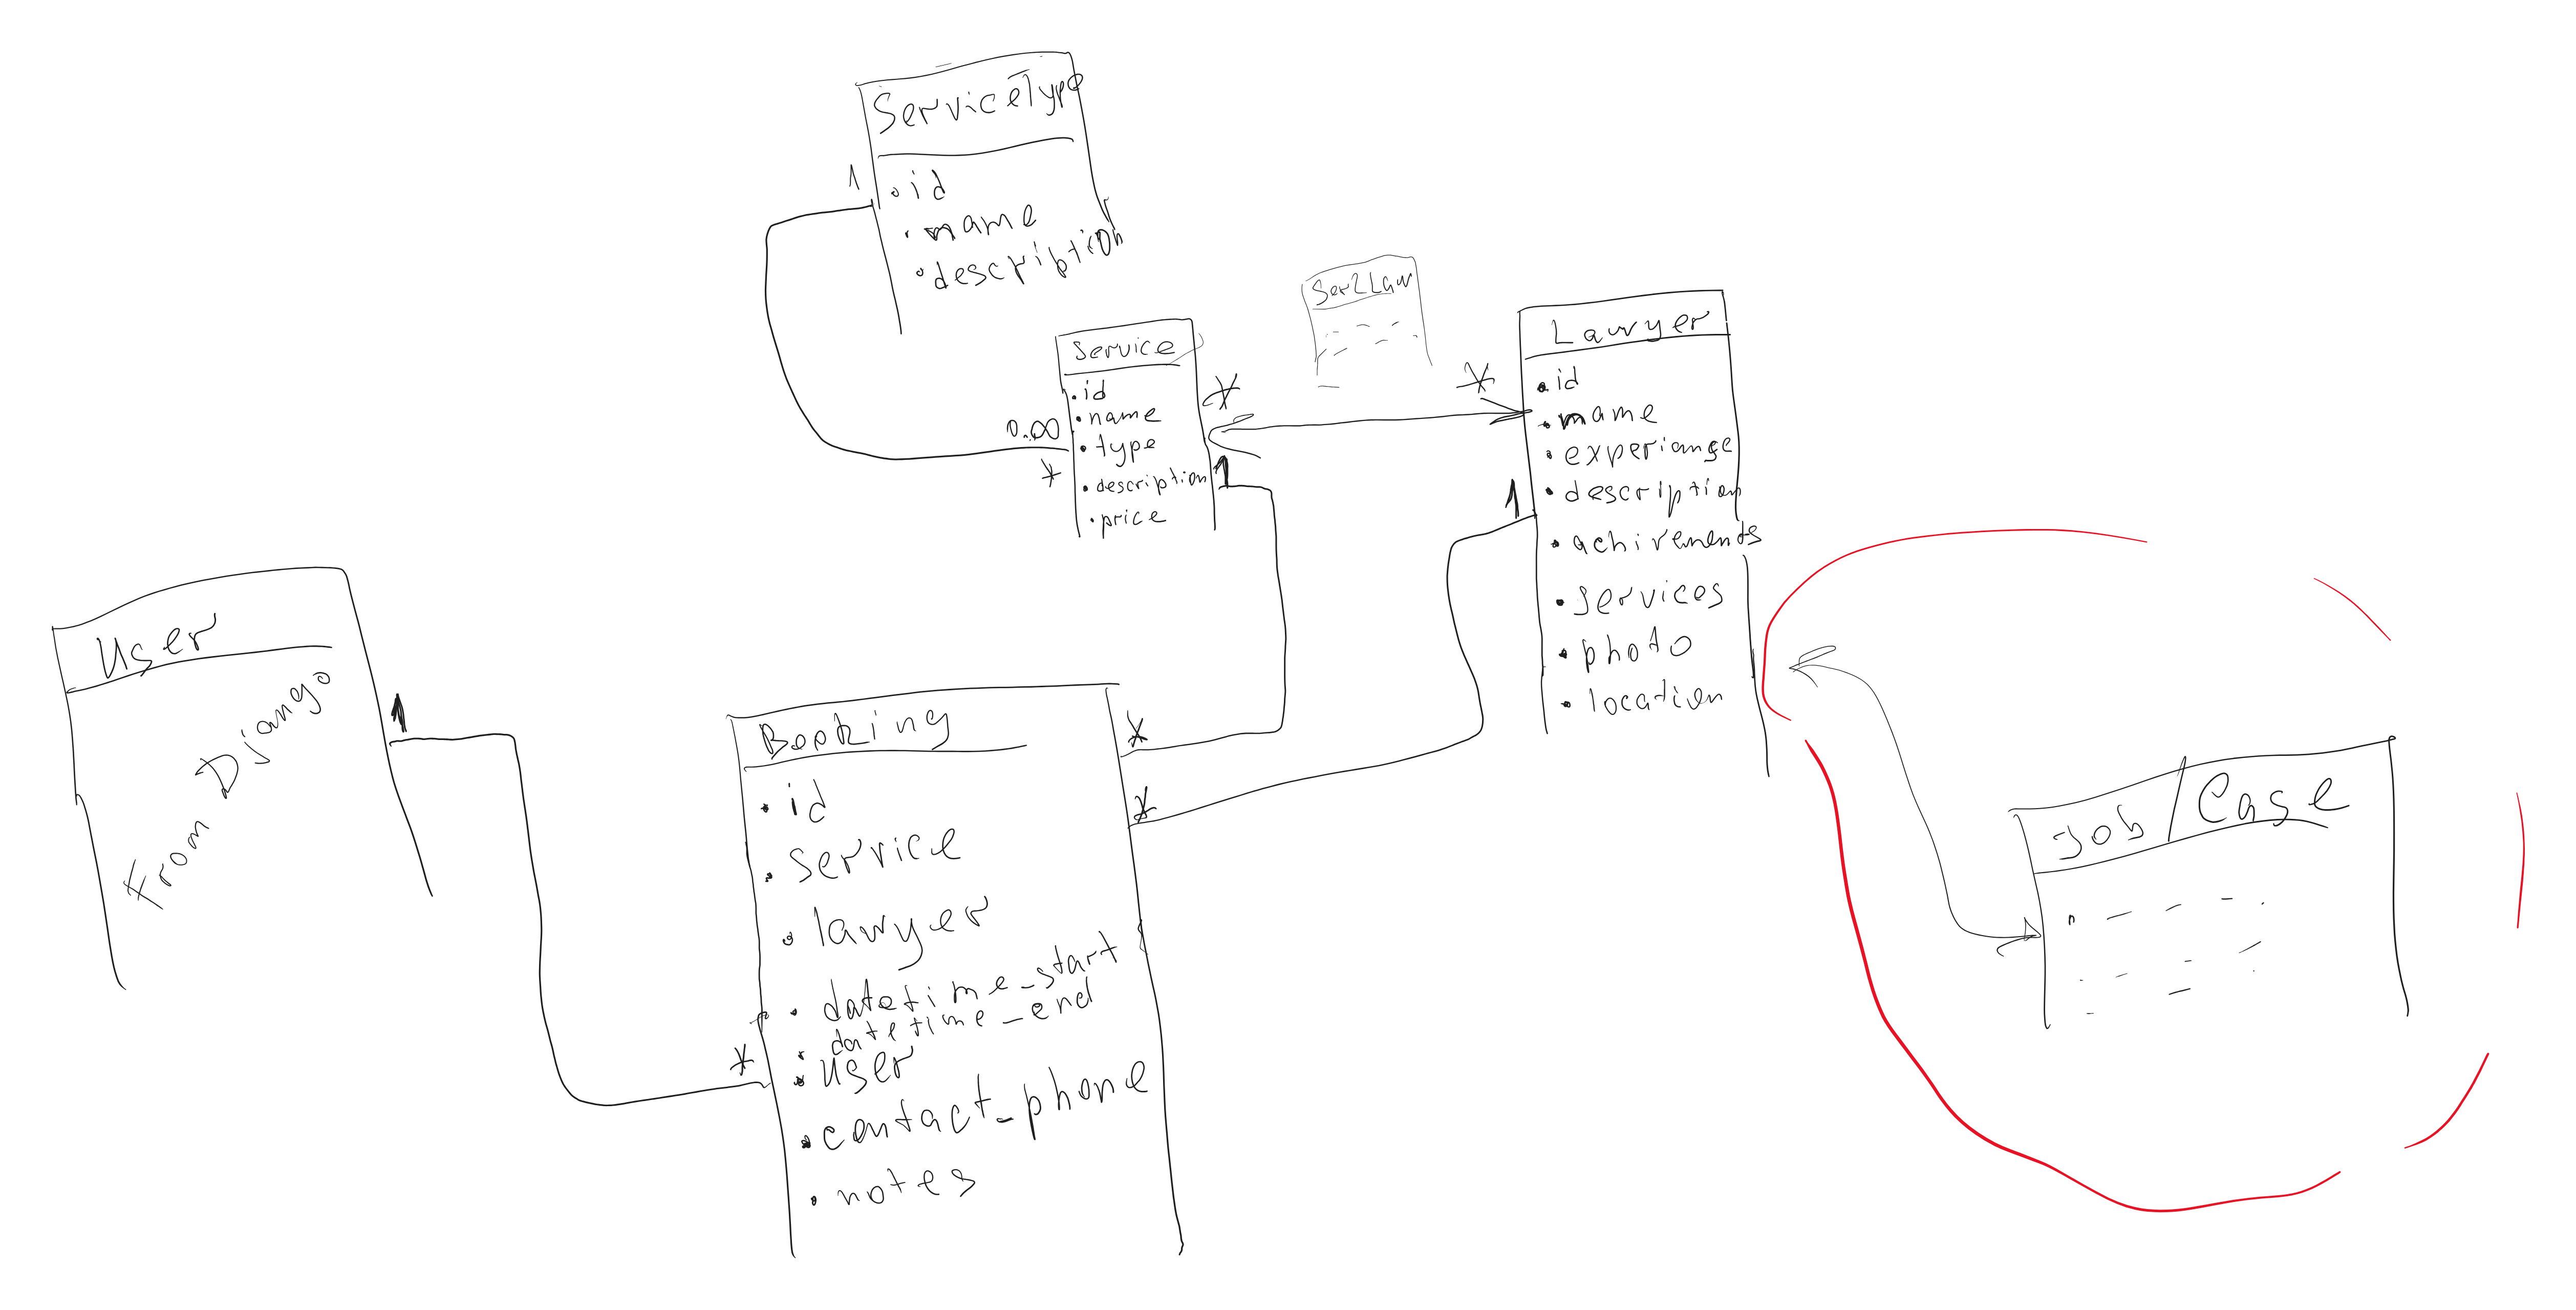 ServiceType
1
id
name
description
Service
id
name
type
description
price
0..∞
*
*
1
Ser2Law
*
Lawyer
id
name
experiange
description
achivements
services
photo
location
1
User
From Django
1
*
Booking
id
service
lawyer
datetime_start
datetime_end
user
contact_phone
notes
*
*
Job/Case